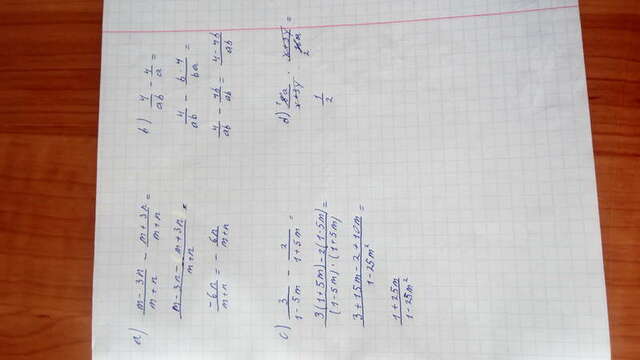 a) m - 3n / m + n - m + 3n / m + n =
m - 3n - m + 3n / m + n =
-6n / m + n = - 6n / m + n
b) 4 / ab - 4 / a =
4 / ab - b 4 / ba
4 / ab - 4b / ab = 4 - 4b / ab
c) 3 / 1 - 5m - 2 / 1 + 5m =
3(1 + 5m) - 2(1 - 5m) / (1 - 5m) · (1 + 5m) =
3 + 15m - 2 + 10m / 1 - 25m² =
1 + 25m / 1 - 25m²
d) a / x + 3y · x + 3y / 2 =
1 / 2